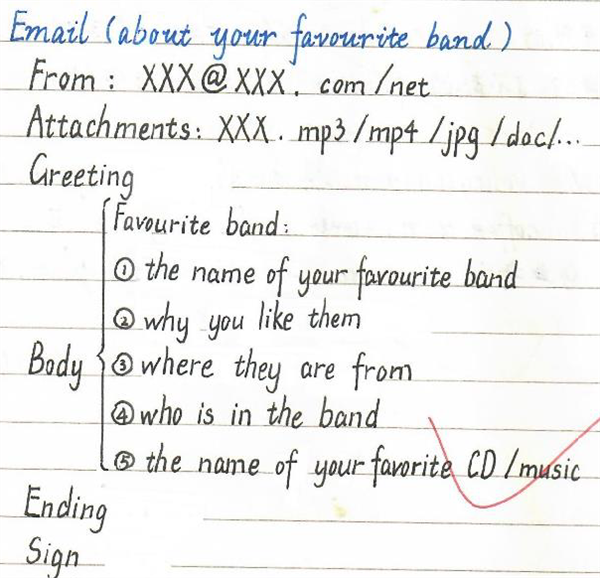 Email (about your favourite band)
From: XXX@XXX. com/net
Attachments: XXX. mp3/mp4/jpg/doc/...
Greeting
Favourite band:
① the name of your favourite band
② why you like them
Body ③ where they are from
④ who is in the band
⑤ the name of your favorite CD/music
Ending
Sign